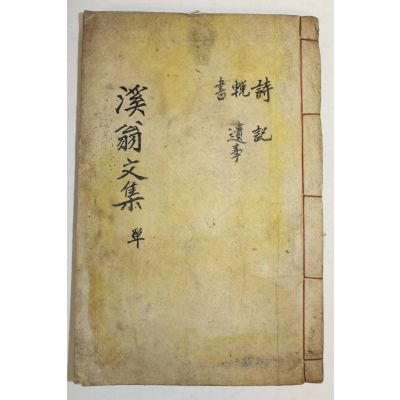 詩 記
輓 遺事
書
溪翁文集 単